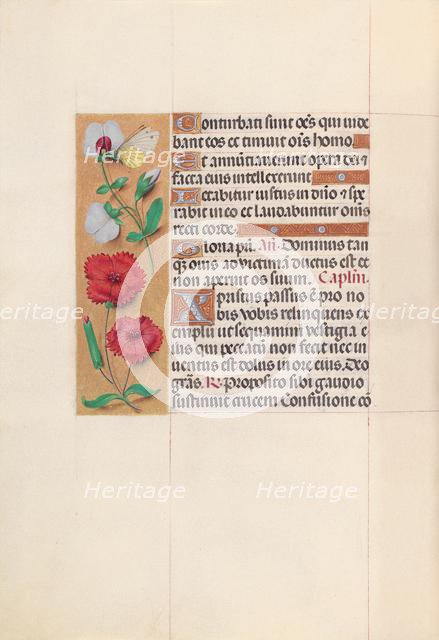 Conturbati sunt oēs qui uide
bant eos et timuit oīs homo.
Et annūtiauerunt opera dei ⁊
facta eius intellexerunt.
Letabitur iustus in dn̄o ⁊ spe
rabit in eo et laudabuntur oēs
recti corde.
Gloria pr̄i. Añ. Dominus tan
q̄ ouis ad victimā ductus est et
non aperuit os suum. Caplm̄.
Xpristus passus ē pro no
bis vobis relinquens ex
emplū ut sequamini vestigia e
ius qui peccatū non fecit nec in
uentus est dolus in ore eius. Deo
gr̄as. R. Proposito sibi gaudio
sustinuit crucem. Confusione cō
Heritage
Heritage
Heritage
Heritage
Heritage